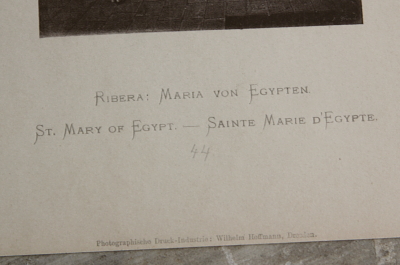 RIBERA: MARIA VON EGYPTEN.
ST. MARY OF EGYPT. — SAINTE MARIE D'EGYPTE.
44
Photographische Druck-Industrie: Wilhelm Hoffmann, Dresden.